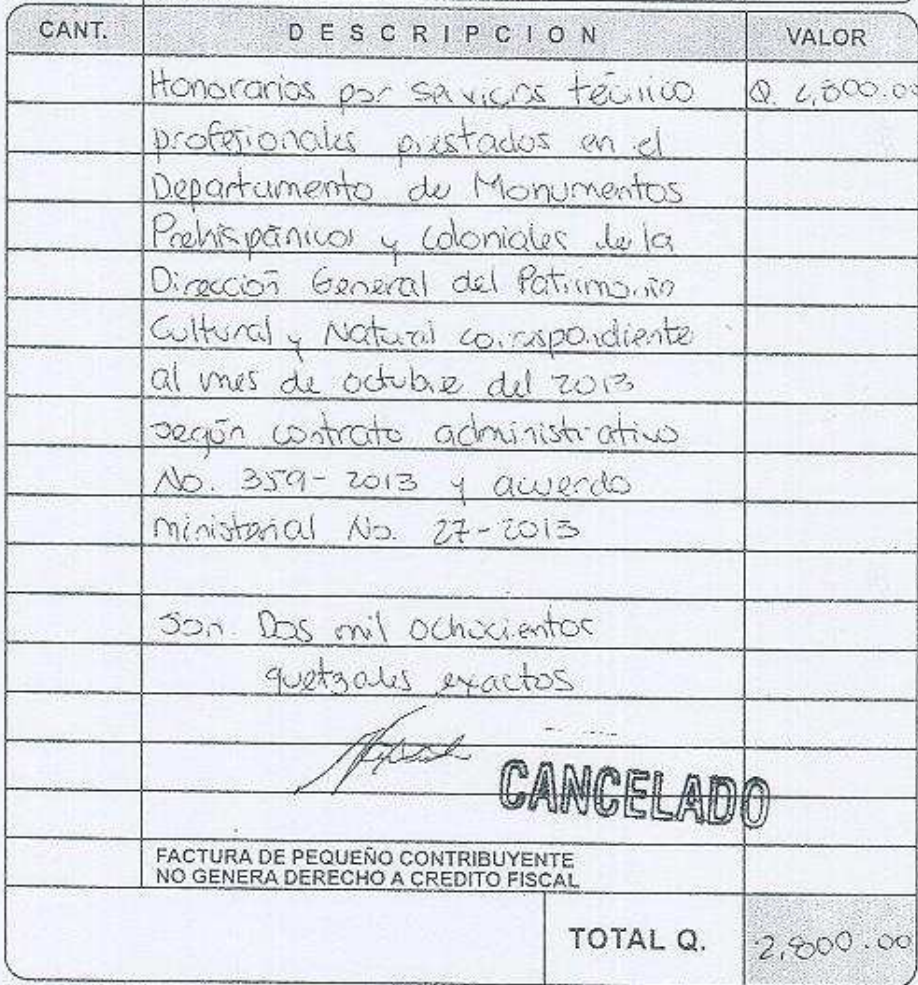 CANT. DESCRIPCION VALOR
Honorarios por servicios técnico Q. 2,800.00
profesionales prestados en el
Departamento de Monumentos
Prehispánicos y Coloniales de la
Dirección General del Patrimonio
Cultural y Natural correspondiente
al mes de octubre del 2013
según contrato administrativo
No. 359-2013 y acuerdo
ministerial No. 27-2013
Son. Dos mil ochocientos
quetzales exactos
CANCELADO
FACTURA DE PEQUEÑO CONTRIBUYENTE
NO GENERA DERECHO A CREDITO FISCAL
TOTAL Q. 2,800.00